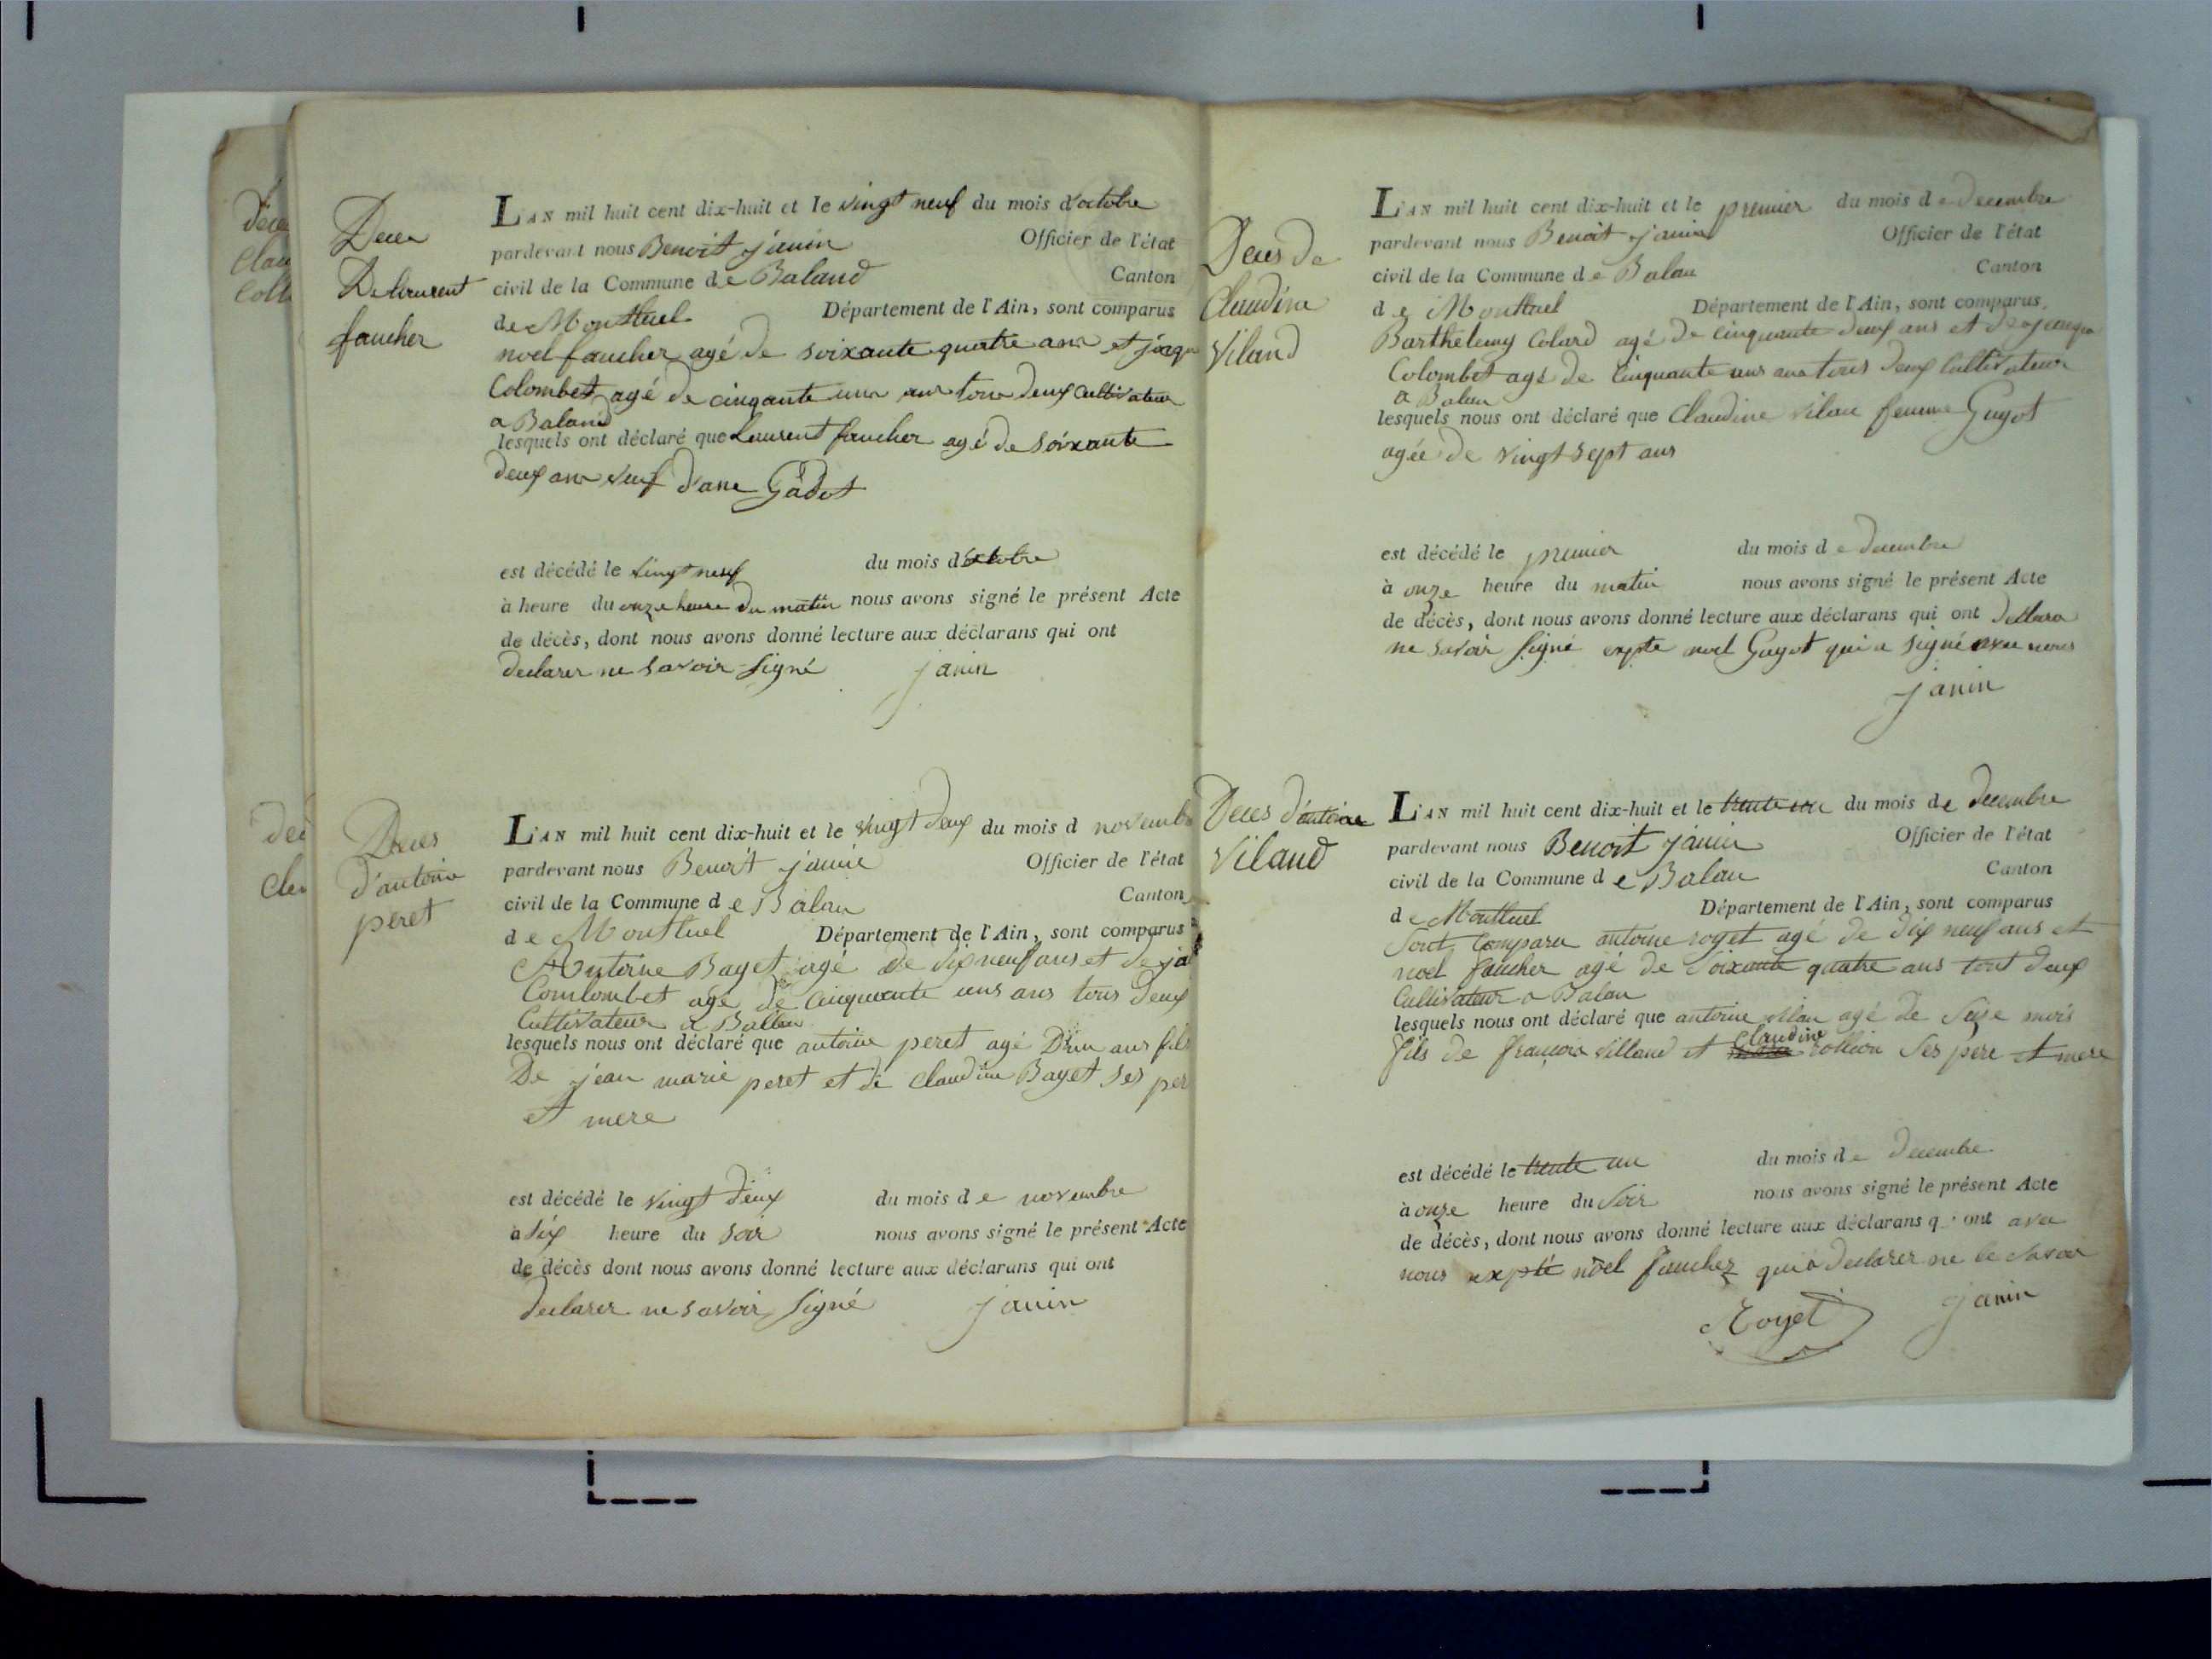 Deces
De laurent
faucher
L'AN mil huit cent dix-huit et le vingt neuf du mois d'octobre
pardevant nous Benoit janin Officier de l'état
civil de la Commune de Baland Canton
de Montluel Département de l'Ain, sont comparus
noel faucher agé de soixante quatre ans et jaqu
Colombet agé de cinqante uns ans tous deux cultivateur
a Baland
lesquels ont déclaré que Laurent faucher agé de soixante
deux ans veuf d'ane Gadot
est décédé le vingt neuf du mois d'octobre
à heure du onze heure du matin nous avons signé le présent Acte
de décès, dont nous avons donné lecture aux déclarans qui ont
declarer ne savoir signé janin
Deces
d'antoine
peret
L'AN mil huit cent dix-huit et le vingt deux du mois d novemb
pardevant nous Benoit janin Officier de l'état
civil de la Commune de Balan Canton
de Montluel Département de l'Ain, sont comparus
Antoine Baget agé de dix neuf ans et de ja
Comlombet agé de cinquante uns ans tous deux
Cultivateur a Ballan
lesquels nous ont déclaré que antoine peret agé D'un ans fils
De jean marie peret et de claudine Baget ses per
et mere
est décédé le vingt deux du mois de novembre
à six heure du soir nous avons signé le présent Acte
de décès dont nous avons donné lecture aux déclarans qui ont
declarer ne savoir signé janin
Deces De
Claudine
Viland
L'AN mil huit cent dix-huit et le premier du mois de Decembre
pardevant nous Benoit janin Officier de l'état
civil de la Commune de Balan Canton
de Montluel Département de l'Ain, sont comparus
Barthelemy Colard agé de cinquante deux ans et de jaque
Colombet agé de Cinquante uns ans tous deux Cultivateur
a Balan
lesquels nous ont déclaré que Claudine vilan femme Guyot
agée de vingt sept ans
est décédé le premier du mois de decembre
à onze heure du matin nous avons signé le présent Acte
de décès, dont nous avons donné lecture aux déclarans qui ont
ne savoir signé expte noel Guyot qui a signé avec nous
janin
Deces d'antoine
Viland
L'AN mil huit cent dix-huit et le trente un du mois de decembre
pardevant nous Benoit janin Officier de l'état
civil de la Commune de Balan Canton
de Montluel Département de l'Ain, sont comparus
Sont Comparu antoine roget agé de dix neuf ans et
noel faucher agé de soixante quatre ans tout deux
Cultivateur a Balan
lesquels nous ont déclaré que antoine vilan agé de Seize mois
fils de françois villand et claudine ses pere et mere
est décédé le trente un du mois de Decembre
à onze heure du soir nous avons signé le présent Acte
de décès, dont nous avons donné lecture aux déclarans qui ont avec
nous expté noel faucher qui a declarer ne le savoir
Roget janin